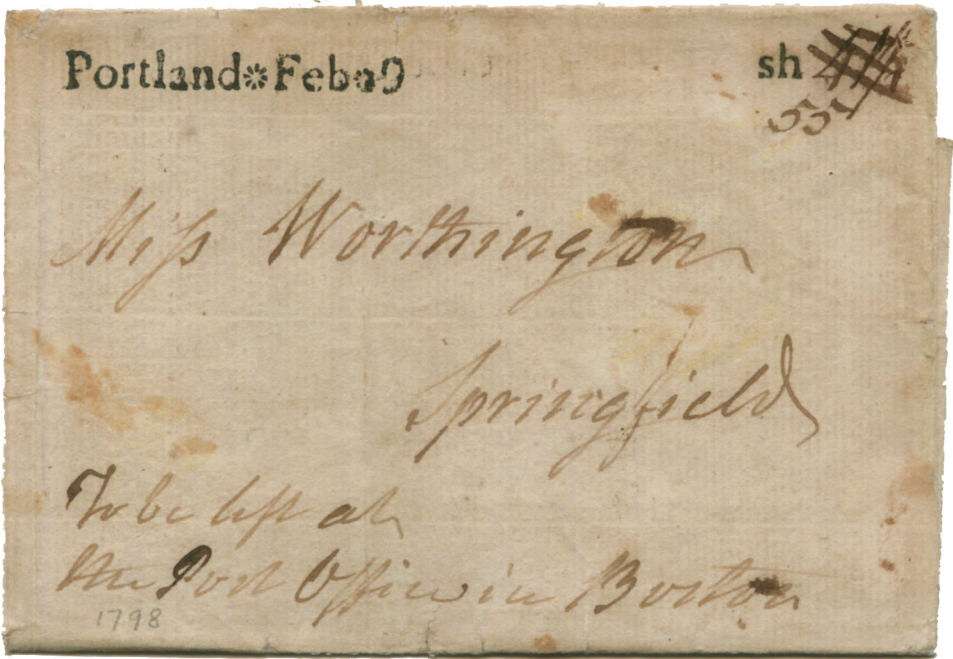 Portland*Feb 9 sh
55
Miſs Worthington
Springfield
To be left at
the Post Office in Boston
1798